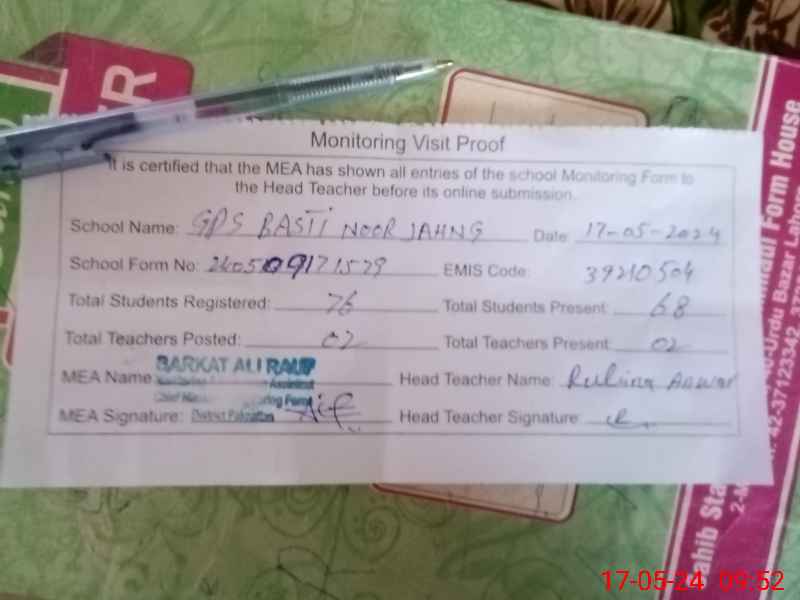 Monitoring Visit Proof
It is certified that the MEA has shown all entries of the school Monitoring Form to
the Head Teacher before its online submission.
School Name: GPS BASTI NOOR JAHNG Date: 17-05-2024
School Form No: 240509171579 EMIS Code: 39210504
Total Students Registered: 76 Total Students Present: 68
Total Teachers Posted: 02 Total Teachers Present: 02
BARKAT ALI RAUF
MEA Name Head Teacher Name: Rubina Anwar
Monitoring Assistant
Chief Monitoring Force
MEA Signature: District Pakpattan Head Teacher Signature:
Form House
Urdu Bazar Lahore
42-37123342
17-05-24 09:52